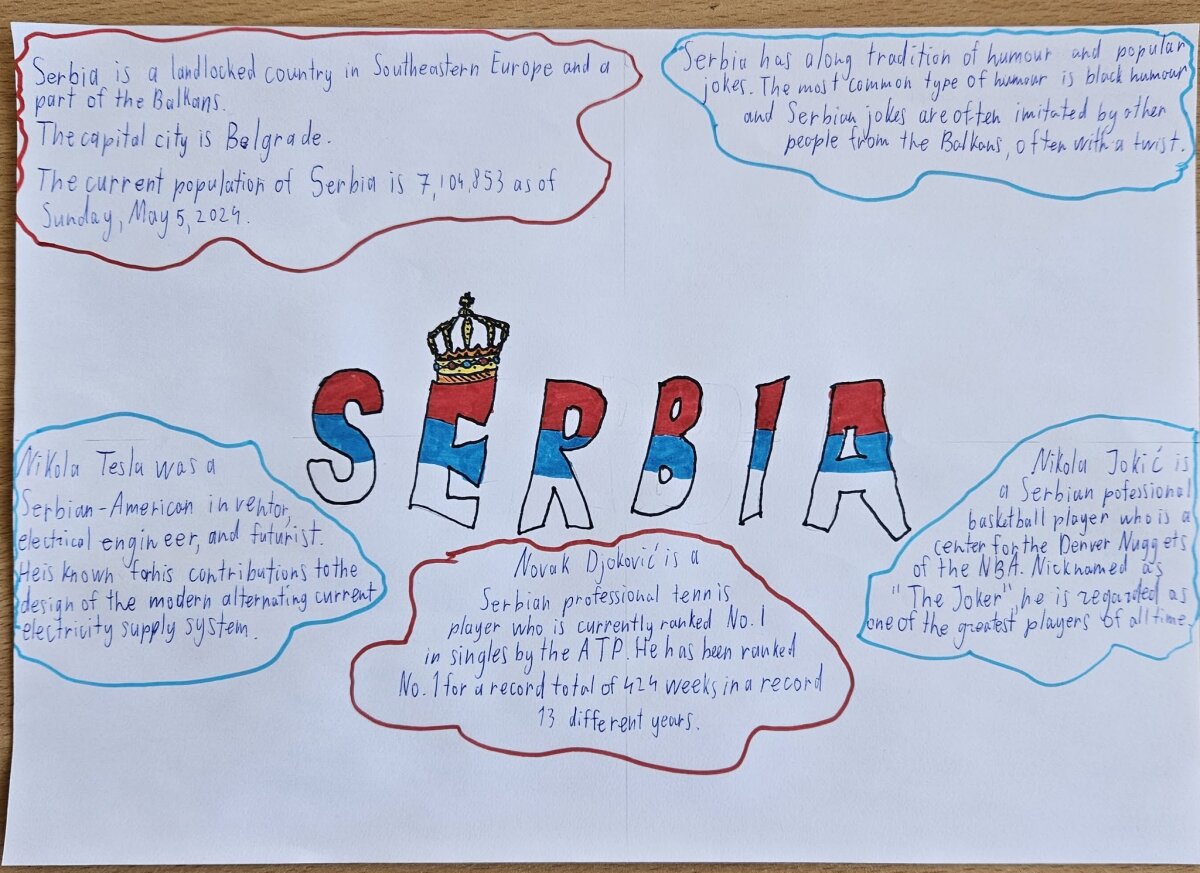 Serbia is a landlocked country in Southeastern Europe and a
part of the Balkans.
The capital city is Belgrade.
The current population of Serbia is 7,104,853 as of
Sunday, May 5, 2024.
Serbia has a long tradition of humour and popular
jokes. The most common type of humour is black humour
and Serbian jokes are often imitated by other
people from the Balkans, often with a twist.
SERBIA
Nikola Tesla was a
Serbian-American inventor,
electrical engineer, and futurist.
He is known for his contributions to the
design of the modern alternating current
electricity supply system.
Novak Djoković is a
Serbian professional tennis
player who is currently ranked No. 1
in singles by the ATP. He has been ranked
No. 1 for a record total of 424 weeks in a record
13 different years.
Nikola Jokić is
a Serbian pofessional
basketball player who is a
center for the Denver Nuggets
of the NBA. Nicknamed as
"The Joker", he is regarded as
one of the greatest players of all time.